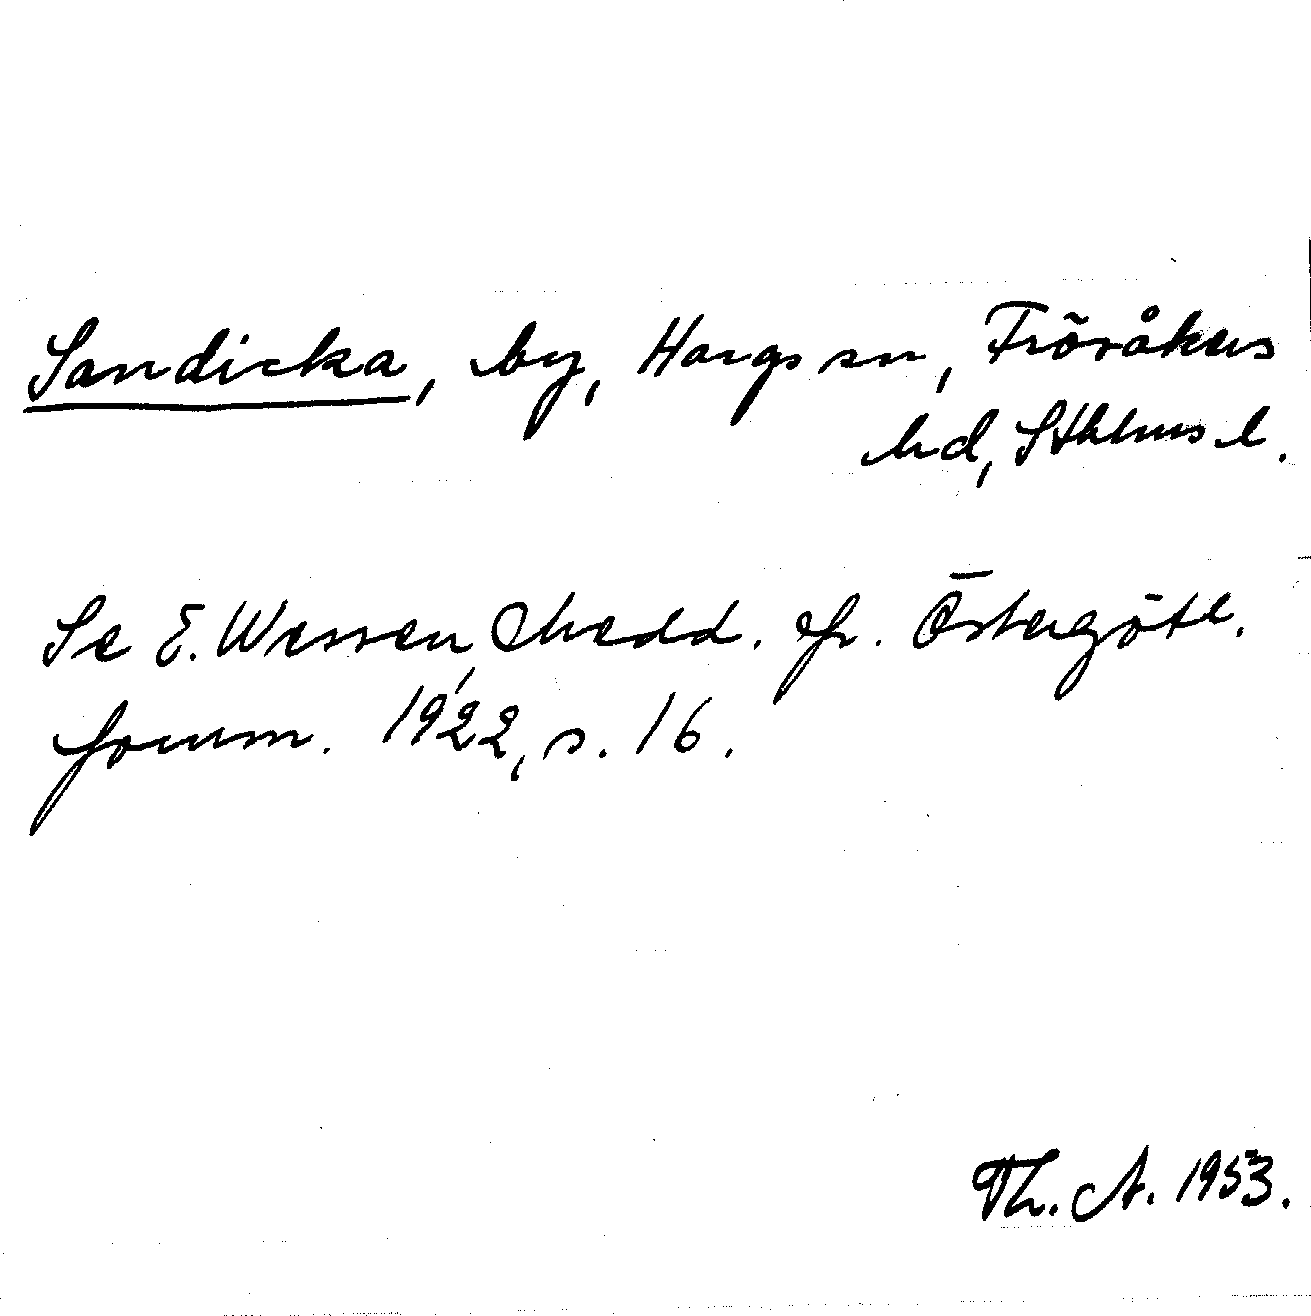 Sandicka, by, Hargs sn, Frösåkers
hd, Sthlms l.
Se E. Wessen, Medd. fr. Östergötl.
fornm. 1922, s. 16.
Th. A. 1953.